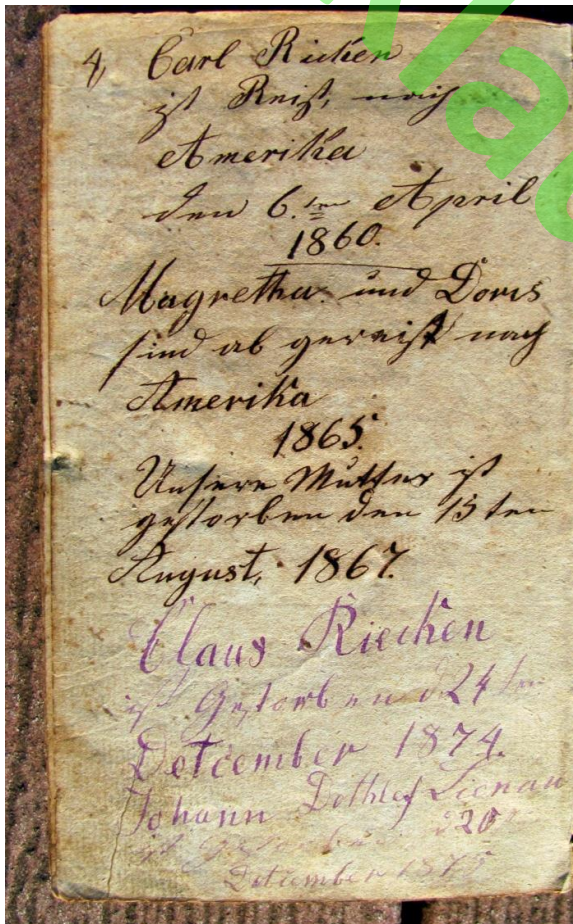 4 Carl Ricken
ist Reist, nach
Amerika
den 6.ten April
1860.
Magretha und Doris
sind ab gereist nach
Amerika
1865.
Unsere Mutter ist
gestorben den 15ten
August, 1867.
Claus Riecken
ist Gestorben d 24ten
Detcember 1874.
Johann Dethlef Lienau
ist gestorben d 20
Detcember